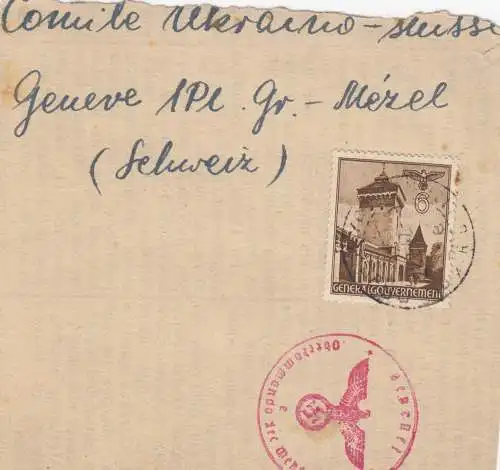 Comite Ukraino-suisse
Geneve 1Pl. Gr.- Mézel
(Schweiz)
6
GENERALGOUVERNEMENT
Oberkommando der Wehr
geprüft